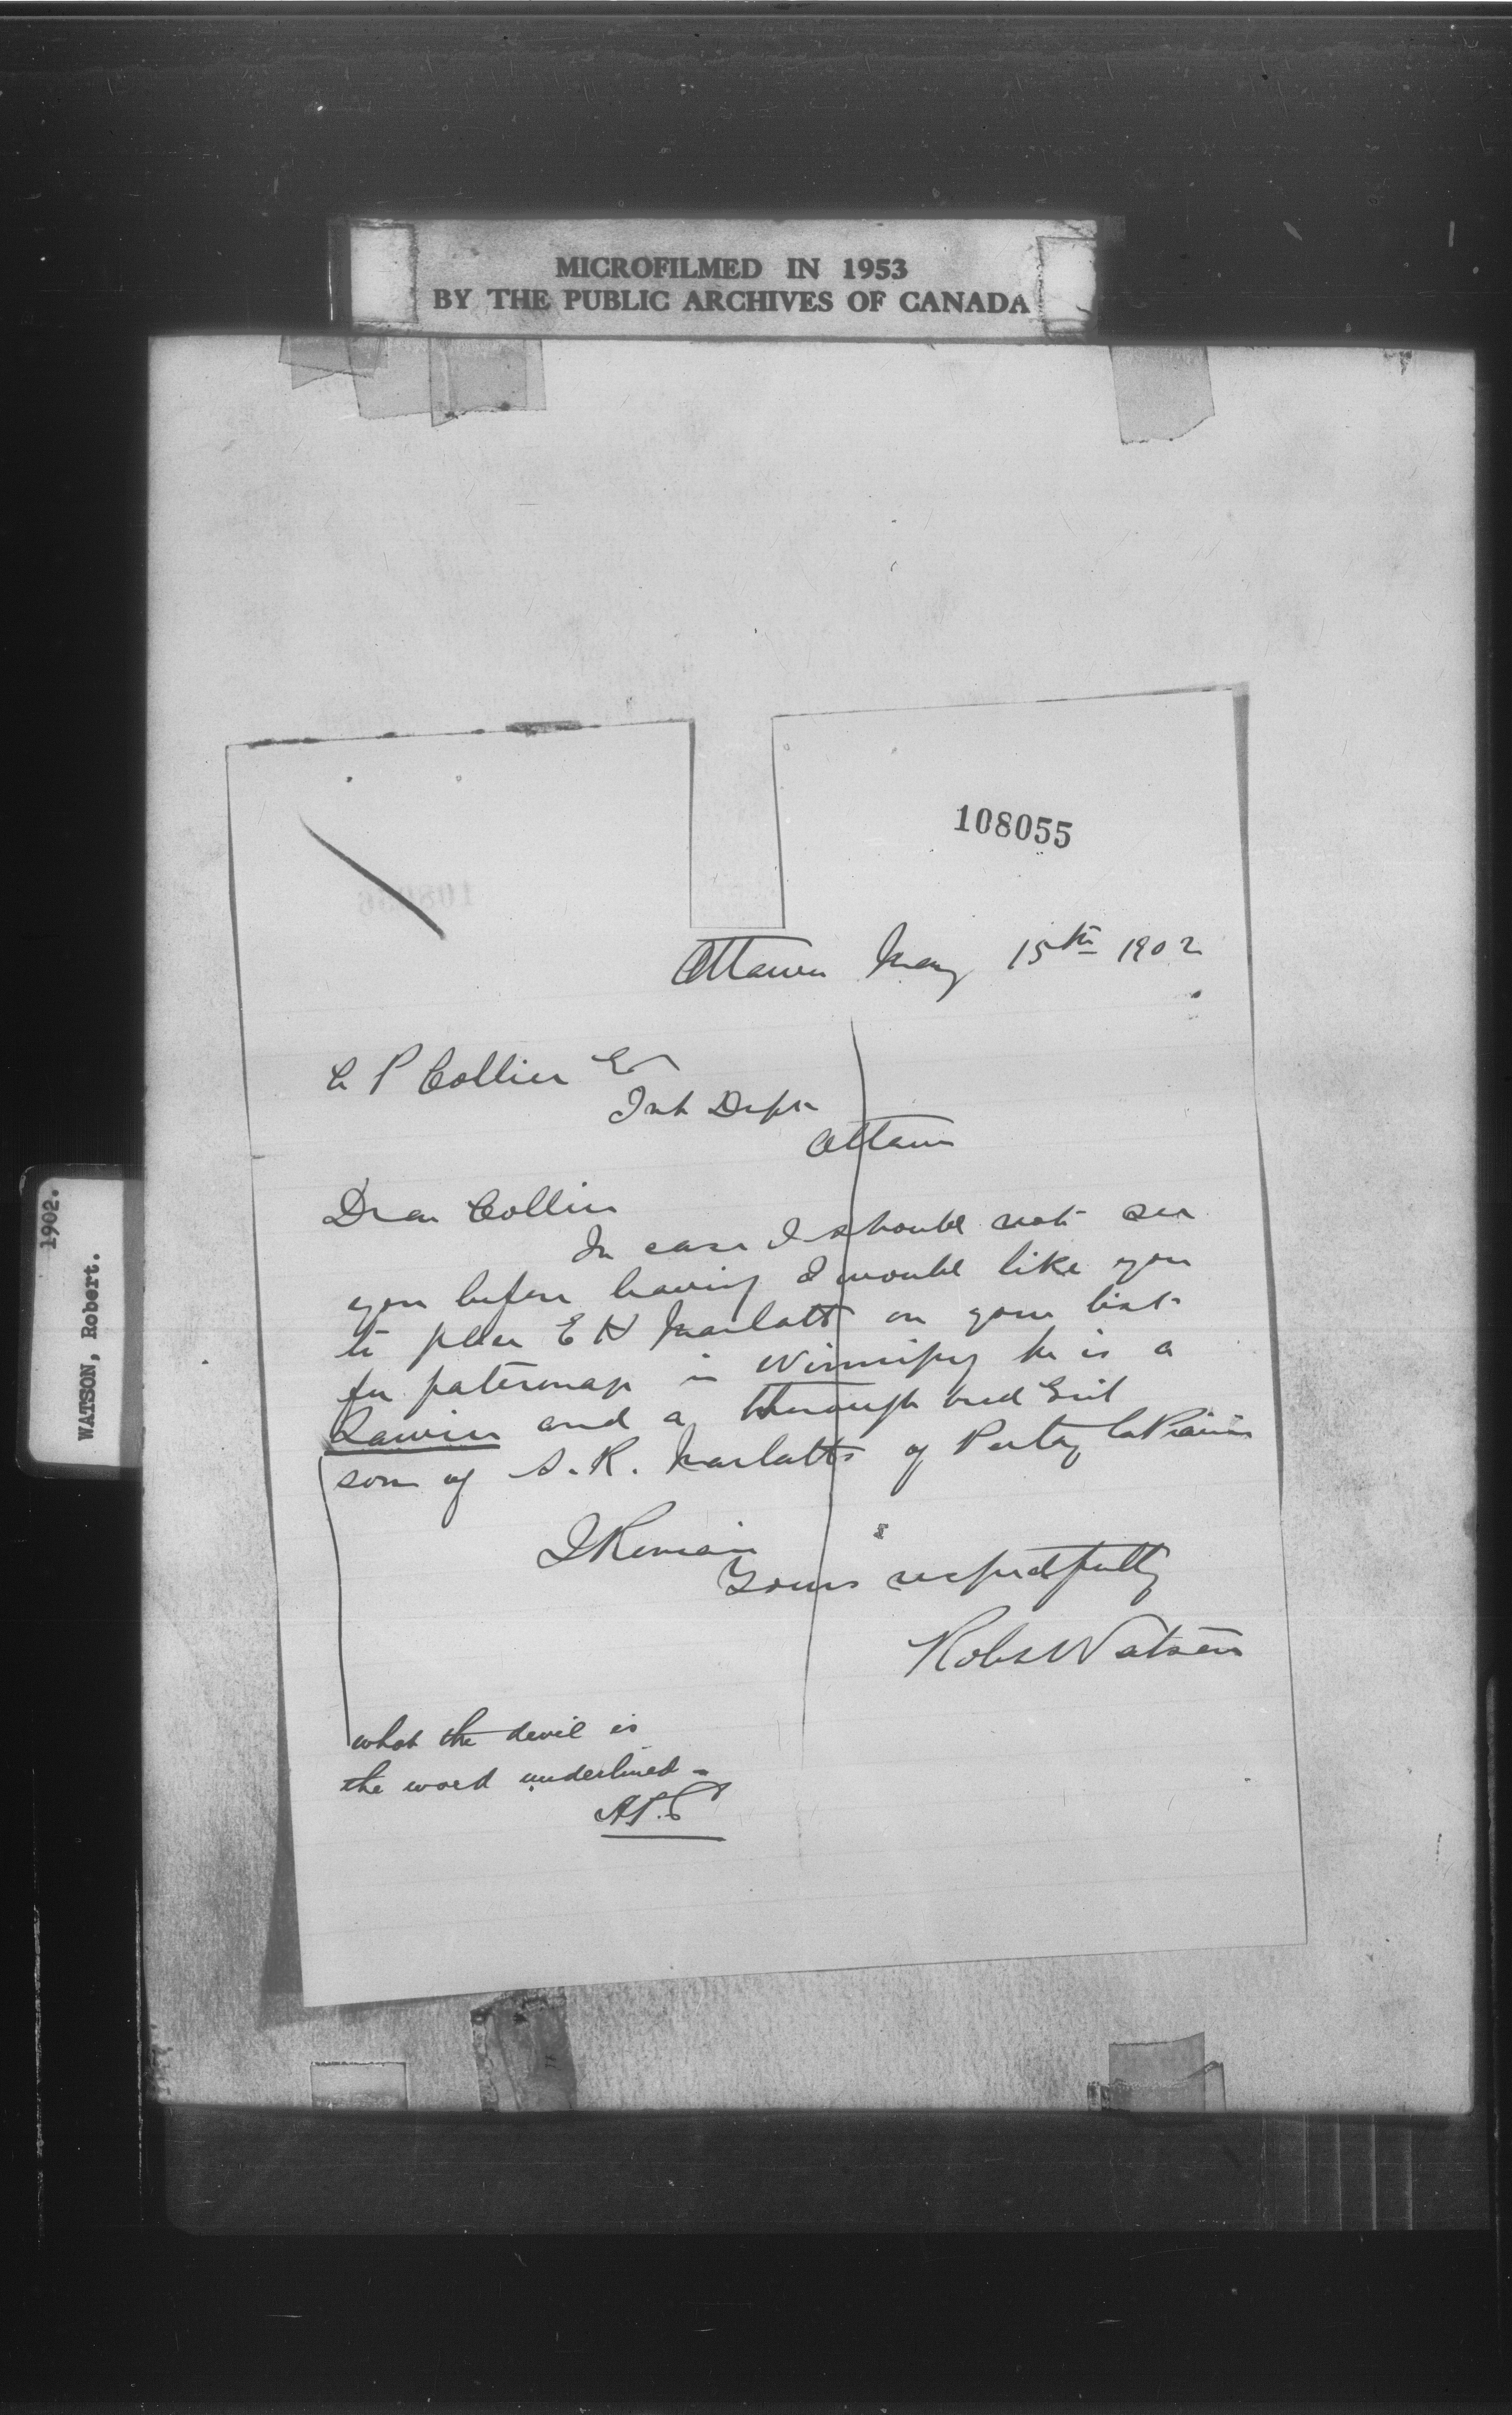 MICROFILMED IN 1953
BY THE PUBLIC ARCHIVES OF CANADA
1902.
WATSON, Robert.
108055
Ottawa May 15th 1902
P Collier
Int Dept
Ottawa
Dear Collier
In case I should not see
you before leaving I would like you
to place E H Marlatt on your list
for patronage in Winnipeg he is a
Lawier and a through bred Grit
son of S. R. Marlatts of Portag la Prairie
I Remain
Yours respectfully
Robt Watson
what the devil is
the word underlined -
A.P.C